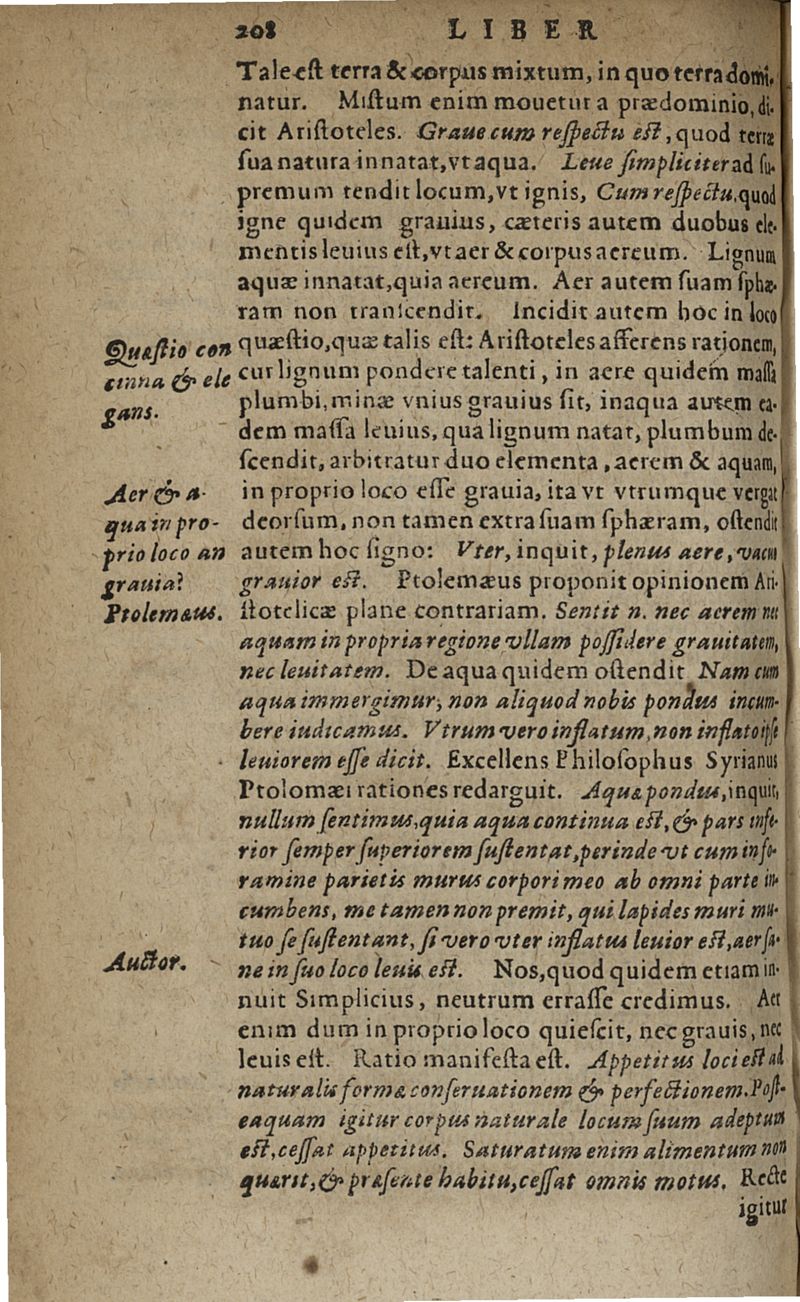 208 LIBER
Tale eſt terra & corpus mixtum, in quo terra domi-
natur. Miſtum enim mouetur a prædominio, di-
cit Ariſtoteles. Graue cum reſpectu eſt, quod terræ
ſua natura innatat, vt aqua. Leue ſimpliciter ad ſu-
premum tendit locum, vt ignis, Cum reſpectu, quod
igne quidem grauius, cæteris autem duobus ele-
mentis leuius eſt, vt aer & corpus aereum. Lignum
aquæ innatat, quia aereum. Aer autem ſuam ſphæ-
ram non tranſcendit. Incidit autem hoc in loco
Quæſtio con
cinna & ele
gans.
quæſtio, quæ talis eſt: Ariſtoteles afferens rationem,
cur lignum pondere talenti, in aere quidem maſſa
plumbi, minæ vnius grauius ſit, in aqua autem ea-
dem maſſa leuius, qua lignum natat, plumbum de-
ſcendit, arbitratur duo elementa, aerem & aquam,
Aer & a-
qua in pro-
prio loco an
grauia?
Ptolemæus.
in proprio loco eſſe grauia, ita vt vtrumque vergat
deorſum, non tamen extra ſuam ſphæram, oſtendit
autem hoc ſigno: Vter, inquit, plenus aere, vacuo
grauior eſt. Ptolemæus proponit opinionem Ari-
ſtotelicæ plane contrariam. Sentit n. nec aerem nec
aquam in propria regione vllam poſſidere grauitatem,
nec leuitatem. De aqua quidem oſtendit Nam cum
aqua immergimur, non aliquod nobis pondus incum-
bere iudicamus. Vtrum vero inflatum, non inflato ipſe
leuiorem eſſe dicit. Excellens Philoſophus Syrianus
Ptolomæi rationes redarguit. Aquæ pondus, inquit,
nullum ſentimus, quia aqua continua eſt, & pars infe-
rior ſemper ſuperiorem ſuſtentat, perinde vt cum in fo-
ramine parietis murus corpori meo ab omni parte in-
cumbens, me tamen non premit, qui lapides muri mu-
tuo ſe ſuſtentant, ſi vero vter inflatus leuior eſt, aer ſa-
Auctor.
ne in ſuo loco leuis eſt. Nos, quod quidem etiam in-
nuit Simplicius, neutrum erraſſe credimus. Aer
enim dum in proprio loco quieſcit, nec grauis, nec
leuis eſt. Ratio manifeſta eſt. Appetitus loci eſt ad
naturalis formæ conſeruationem & perfectionem. Poſt-
eaquam igitur corpus naturale locum ſuum adeptum
eſt, ceſſat appetitus. Saturatum enim alimentum non
quærit, & præſente habitu, ceſſat omnis motus. Recte
igitur